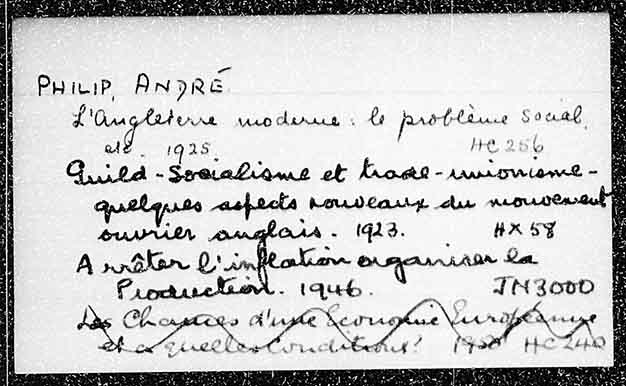 PHILIP, ANDRÉ.
L'Angleterre moderne: le problème social,
etc. 1925. HC 256
Guild-Socialisme et trade-unionisme-
quelques aspects nouveaux du mouvement
ouvrier anglais. 1923. HX 58
Arrêter l'inflation organiser la
Production. 1946. JN3000
Les Chances d'une Economie Européenne
et a Quelles Conditions? 1950 HC 240